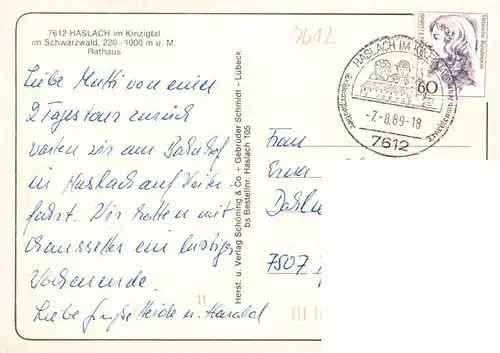 7612 HASLACH im Kinzigtal
im Schwarzwald, 220-1000 m u. M.
Rathaus
7612
Liebe Mutti von einer
2 Tagestour zurück
warten wir am Bahnhof
in Haslach auf Weiter
fahrt. Wir hatten mit
Chaussettes ein lustiges
Wochenende.
Liebe Grüße Heide u. Harald
Herst. u. Verlag Schöning & Co + Gebrüder Schmidt - Lübeck
bs Bestellnr. Haslach 105
11
HASLACH IM
-7.-8.89-18
7612
Deutsche Bundespost
60
Frau
Erna
7507